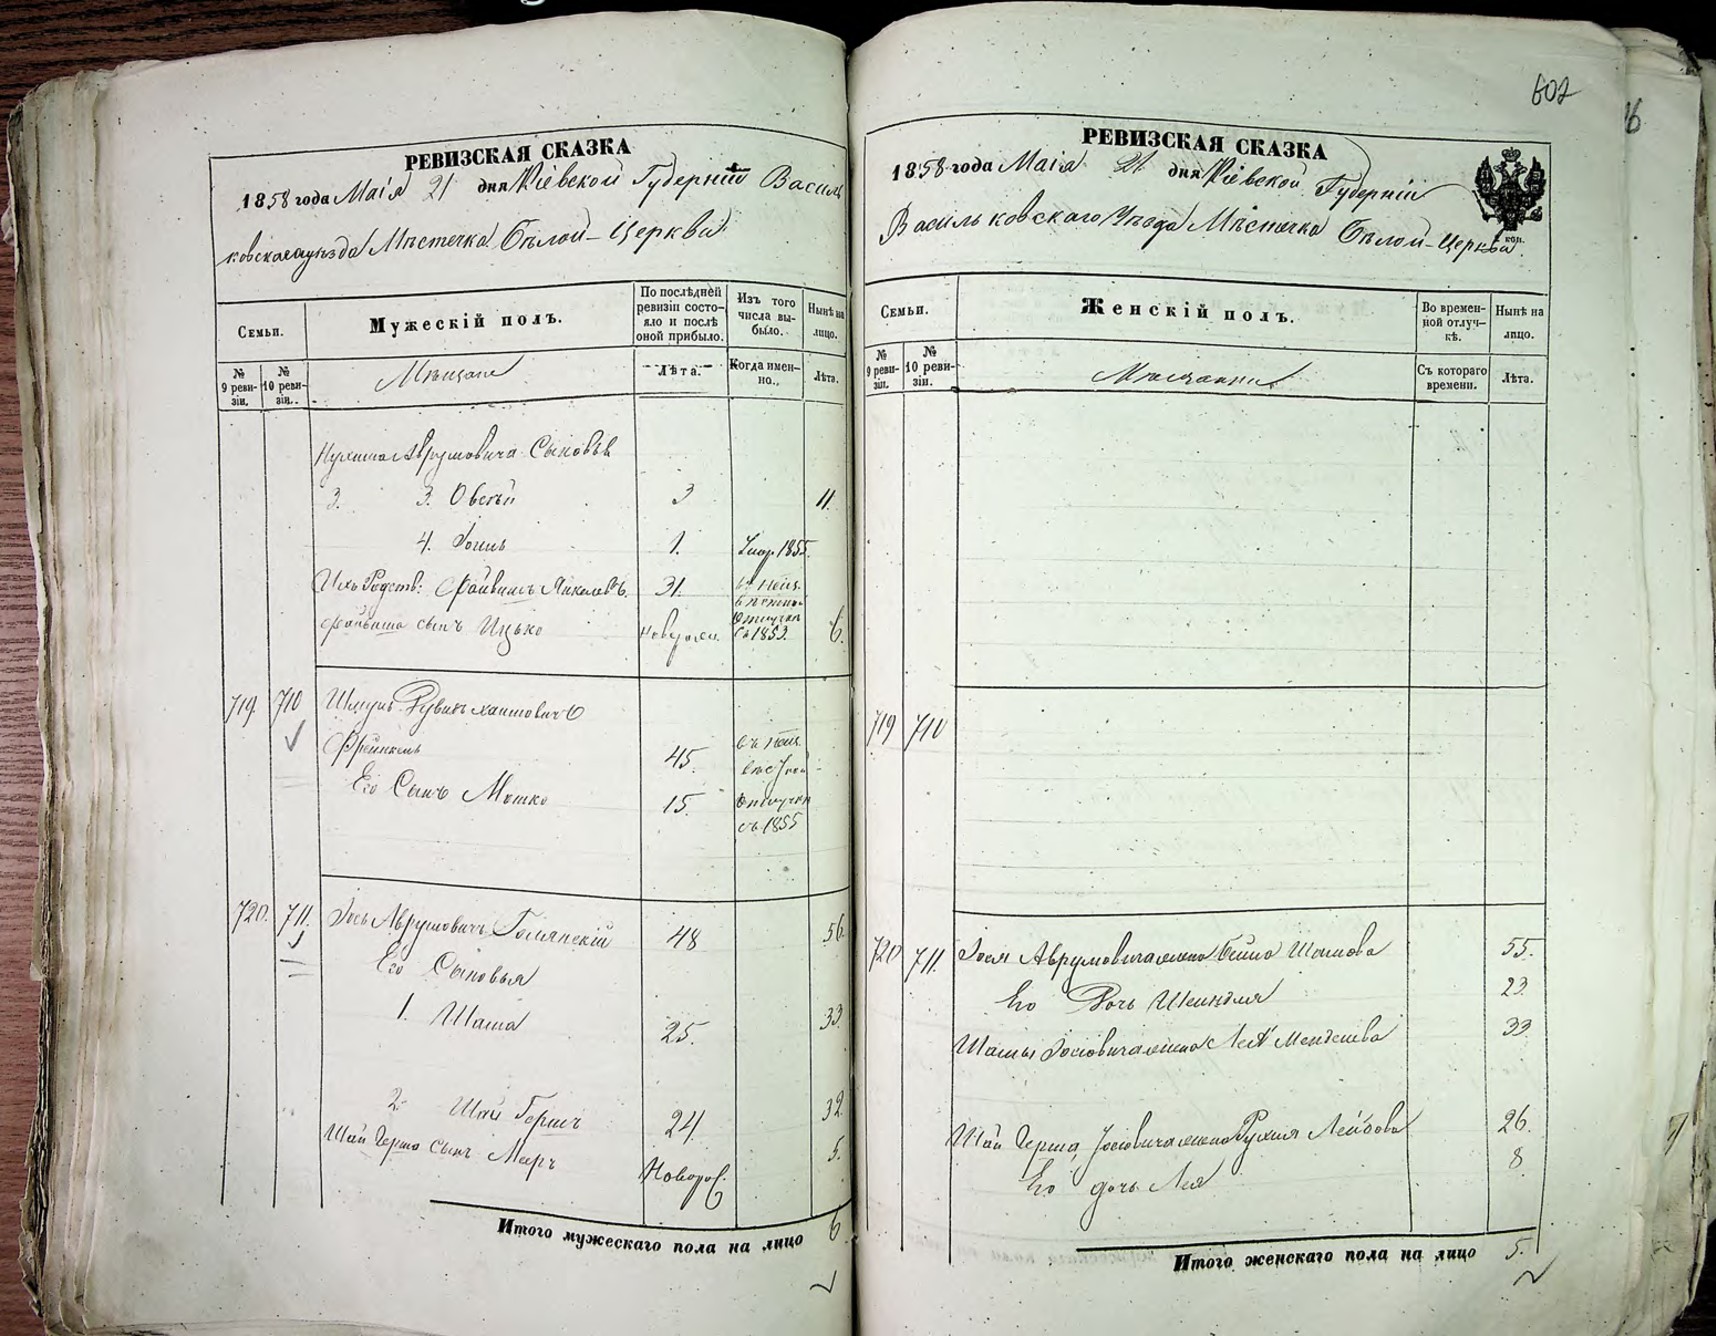 602
РЕВИЗСКАЯ СКАЗКА
1858 года Маія 21 дня Кіевской Губерніи Василь
ковскаго уѣзда Мѣстечка Бѣлой-Церкви
Семьи.
Мужескій полъ.
По послѣдней ревизіи состояло и послѣ оной прибыло.
Изъ того числа выбыло.
Нынѣ на лицо.
№ 9 ревизіи.
№ 10 ревизіи.
Мѣщане
Лѣта.
Когда именно.
Лѣта.
Аврумовича Сыновья
3. 3. Овсѣй 3 11.
4. 1. Умер 1855
Ихъ Родств: Файвишъ Янкелевъ. 31.
Файвиша сынъ Ицько с 1853 6.
719. 710 Шмуль Рувинъ Хаимовичъ
Френкель 45. въ неиз.
Его Сынъ Мошко 15. отлучки
съ 1855
720. 711. Іось Аврумовичъ 48 56.
Его Сыновья
1. Шама 25. 33.
2. Шай Гершъ 24. 32.
Шай Герша сынъ Мееръ Новорож. 5.
Итого мужескаго пола на лицо 6
РЕВИЗСКАЯ СКАЗКА
1858 года Маія 21 дня Кіевской Губерніи
Васильковскаго Уѣзда Мѣстечка Бѣлой-Церкви.
Семьи.
Женскій полъ.
Во временной отлучкѣ.
Нынѣ на лицо.
№ 9 ревизіи.
№ 10 ревизіи.
Мѣщанки
Съ котораго времени.
Лѣта.
719 710
720 711. Іося Аврумовича жена 55.
Его Дочь Шейндля 23.
Шамы Іосіовича жена Лея Менделева 33
Шай Герша Іосіовича жена Рухля Лейбова 26.
Его дочь Лея 8
Итого женскаго пола на лицо 5.